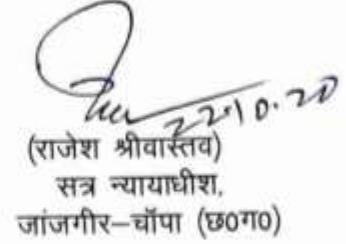 22.10.20
(राजेश श्रीवास्तव)
सत्र न्यायाधीश,
जांजगीर–चॉपा (छ0ग0)